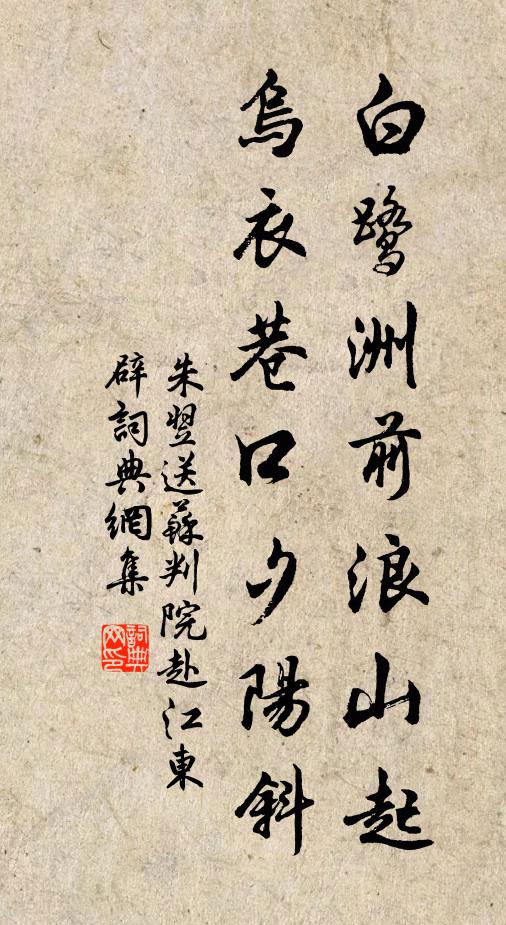 白鷺洲前浪山起
烏衣巷口夕陽斜
朱翌送蘇判院赴江東
辟詞典網集
詞典
网印